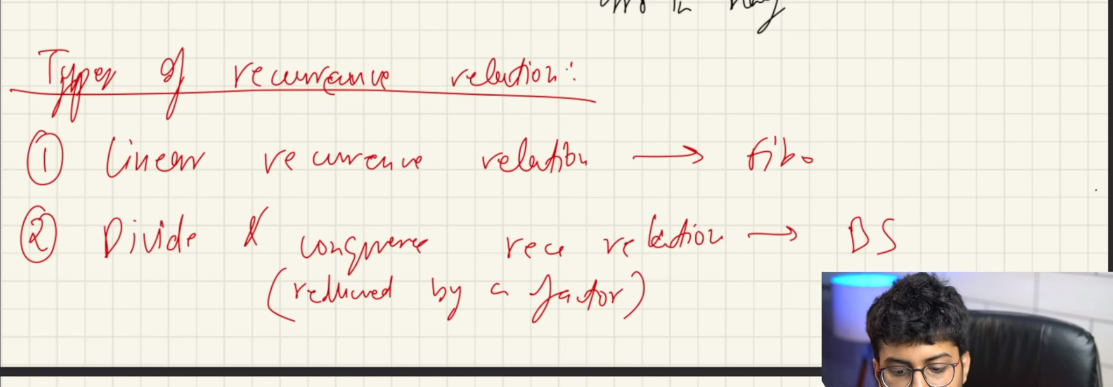 Types of recurrance relation:
① Linear recurrence relation → fibo
② Divide & conquere rece relation → BS
(reduced by a factor)